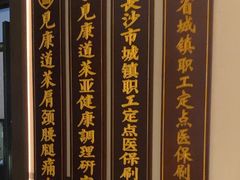 省城镇职工定点医保刷
长沙市城镇职工定点医保刷
見康道莱亚健康調理研
見康道莱肩颈腰腿痛